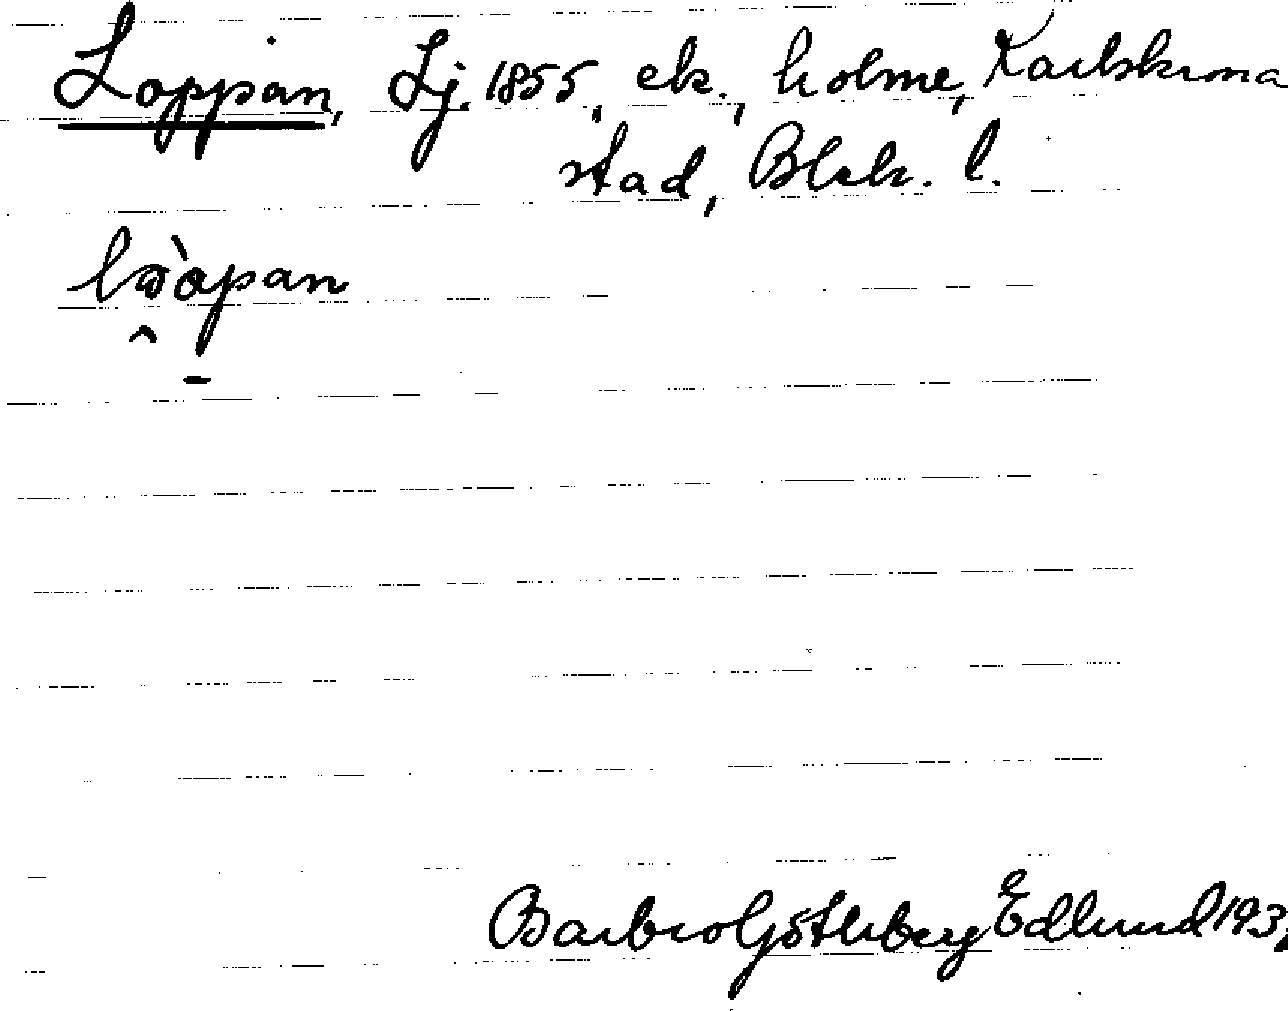 Loppan, Lj. 1855, ek., holme, Karlskrona
stad, Blek. l.
Barbro Götherberg Edlund 193